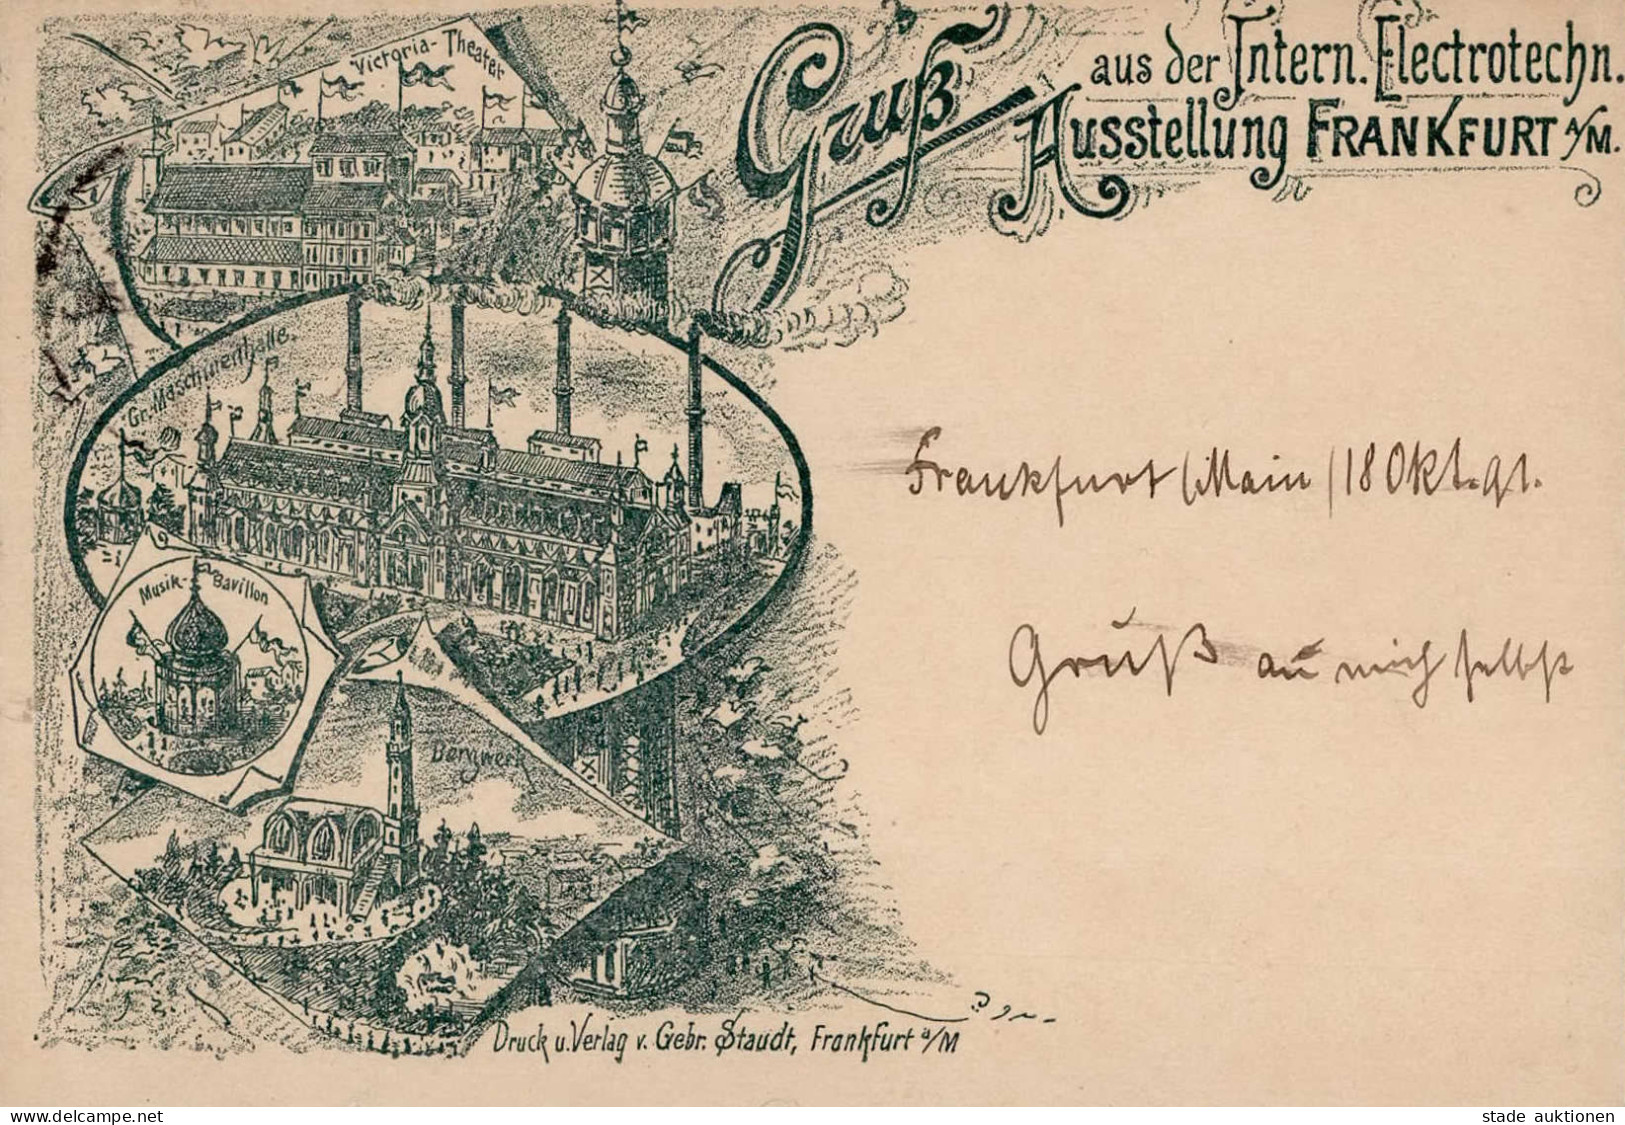 Gruß aus der Intern. Electrotechn.
Ausstellung FRANKFURT a/M.
Victoria-Theater
Gr. Maschinenhalle.
Musik-Pavillon
Bergwerk
Frankfurt /Main /18 Okt. 91.
Gruß an mich selbst
Druck u. Verlag v. Gebr. Staudt, Frankfurt a/M
www.delcampe.net
stade auktionen